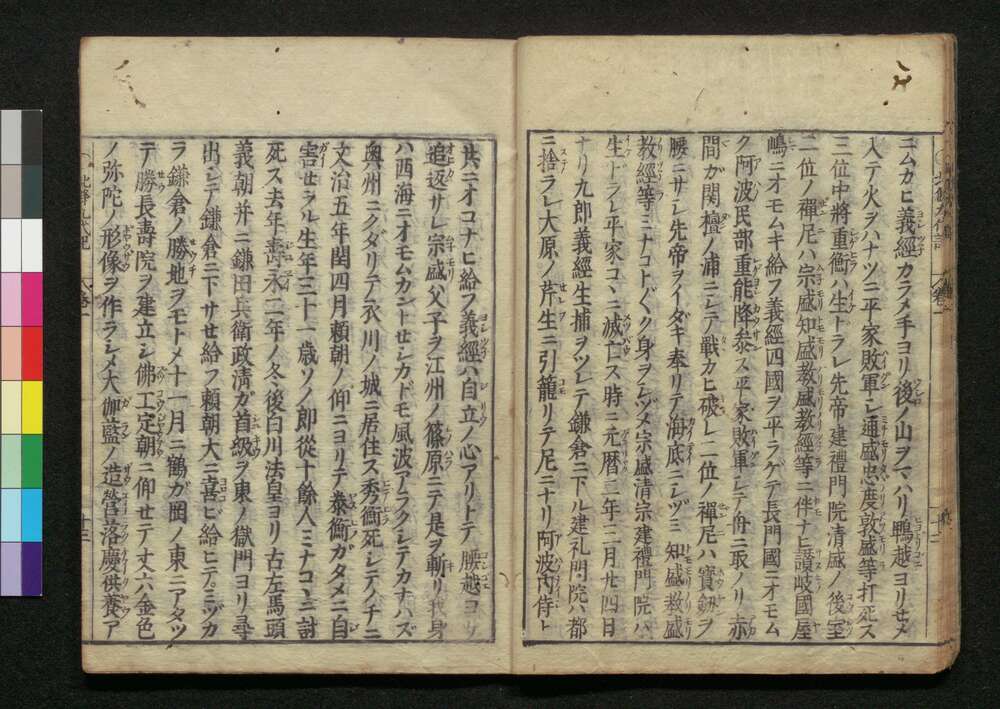 ニムカヒ義經カラメ手ヨリ後ノ山ヲマハリ鴨越ヨリせメ
入テ火ヲハナツニ平家敗軍シ通盛忠度敦盛等打死ス
三位中將重衡ハ生トラレ先帝建禮門院清盛ノ後室
二位ノ禪尼ハ宗盛知盛教盛教經等ニ伴ナヒ讃岐國屋
嶋ニオモムキ給フ義經四國ヲ平ラゲテ長門國ニオモム
ク阿波民部重能降參ス平家敗軍シテ舟ニ取ノリ赤
間が関檀ノ浦ニシテ戦カヒ破レ二位ノ禪尼ハ寶劔ヲ
腰ニサシ先帝ヲイダキ奉リテ海底ニシヅミ知盛教盛
教經等ミナコト〴〵ク身ヲシヅメ宗盛清宗建禮門院ハ
生トラレ平家コヽニ滅亡ス時ニ元暦二年三月廿四日
ナリ九郎義經生捕ヲツレテ鎌倉ニ下ル建礼門院ハ都
ニ捨ラレ大原ノ芹生ニ引籠リテ尼ニナリ阿波内侍ト
共ニオコナヒ給フ義經ハ自立ノ心アリトテ腰越ヨリ
追返サレ宗盛父子ヲ江州ノ篠原ニテ是ヲ斬リ我身
ハ西海ニオモムカントせシカドモ風波アラクシテカナハズ
奥州ニクダリテ衣川ノ城ニ居住ス秀衡死シテノチニ
文治五年閏四月頼朝ノ仰ニヨリテ泰衡ガタメニ自
害せラル生年三十一歳ソノ郎從十餘人ミナコヽニ討
死ス去年壽永二年ノ冬後白川法皇ヨリ古左馬頭
義朝并ニ鎌田兵衛政清ガ首級ヲ東ノ獄門ヨリ尋
出シテ鎌倉ニ下サせ給フ頼朝大ニ喜ビ給ヒテミヅカ
ラ鎌倉ノ勝地ヲモトメ十一月ニ鶴ガ岡ノ東ニアタツ
テ勝長壽院ヲ建立シ佛工定朝ニ仰せテ丈六金色
ノ弥陀ノ形像ヲ作ラシメ大伽藍ノ造營落慶供養ア
十三